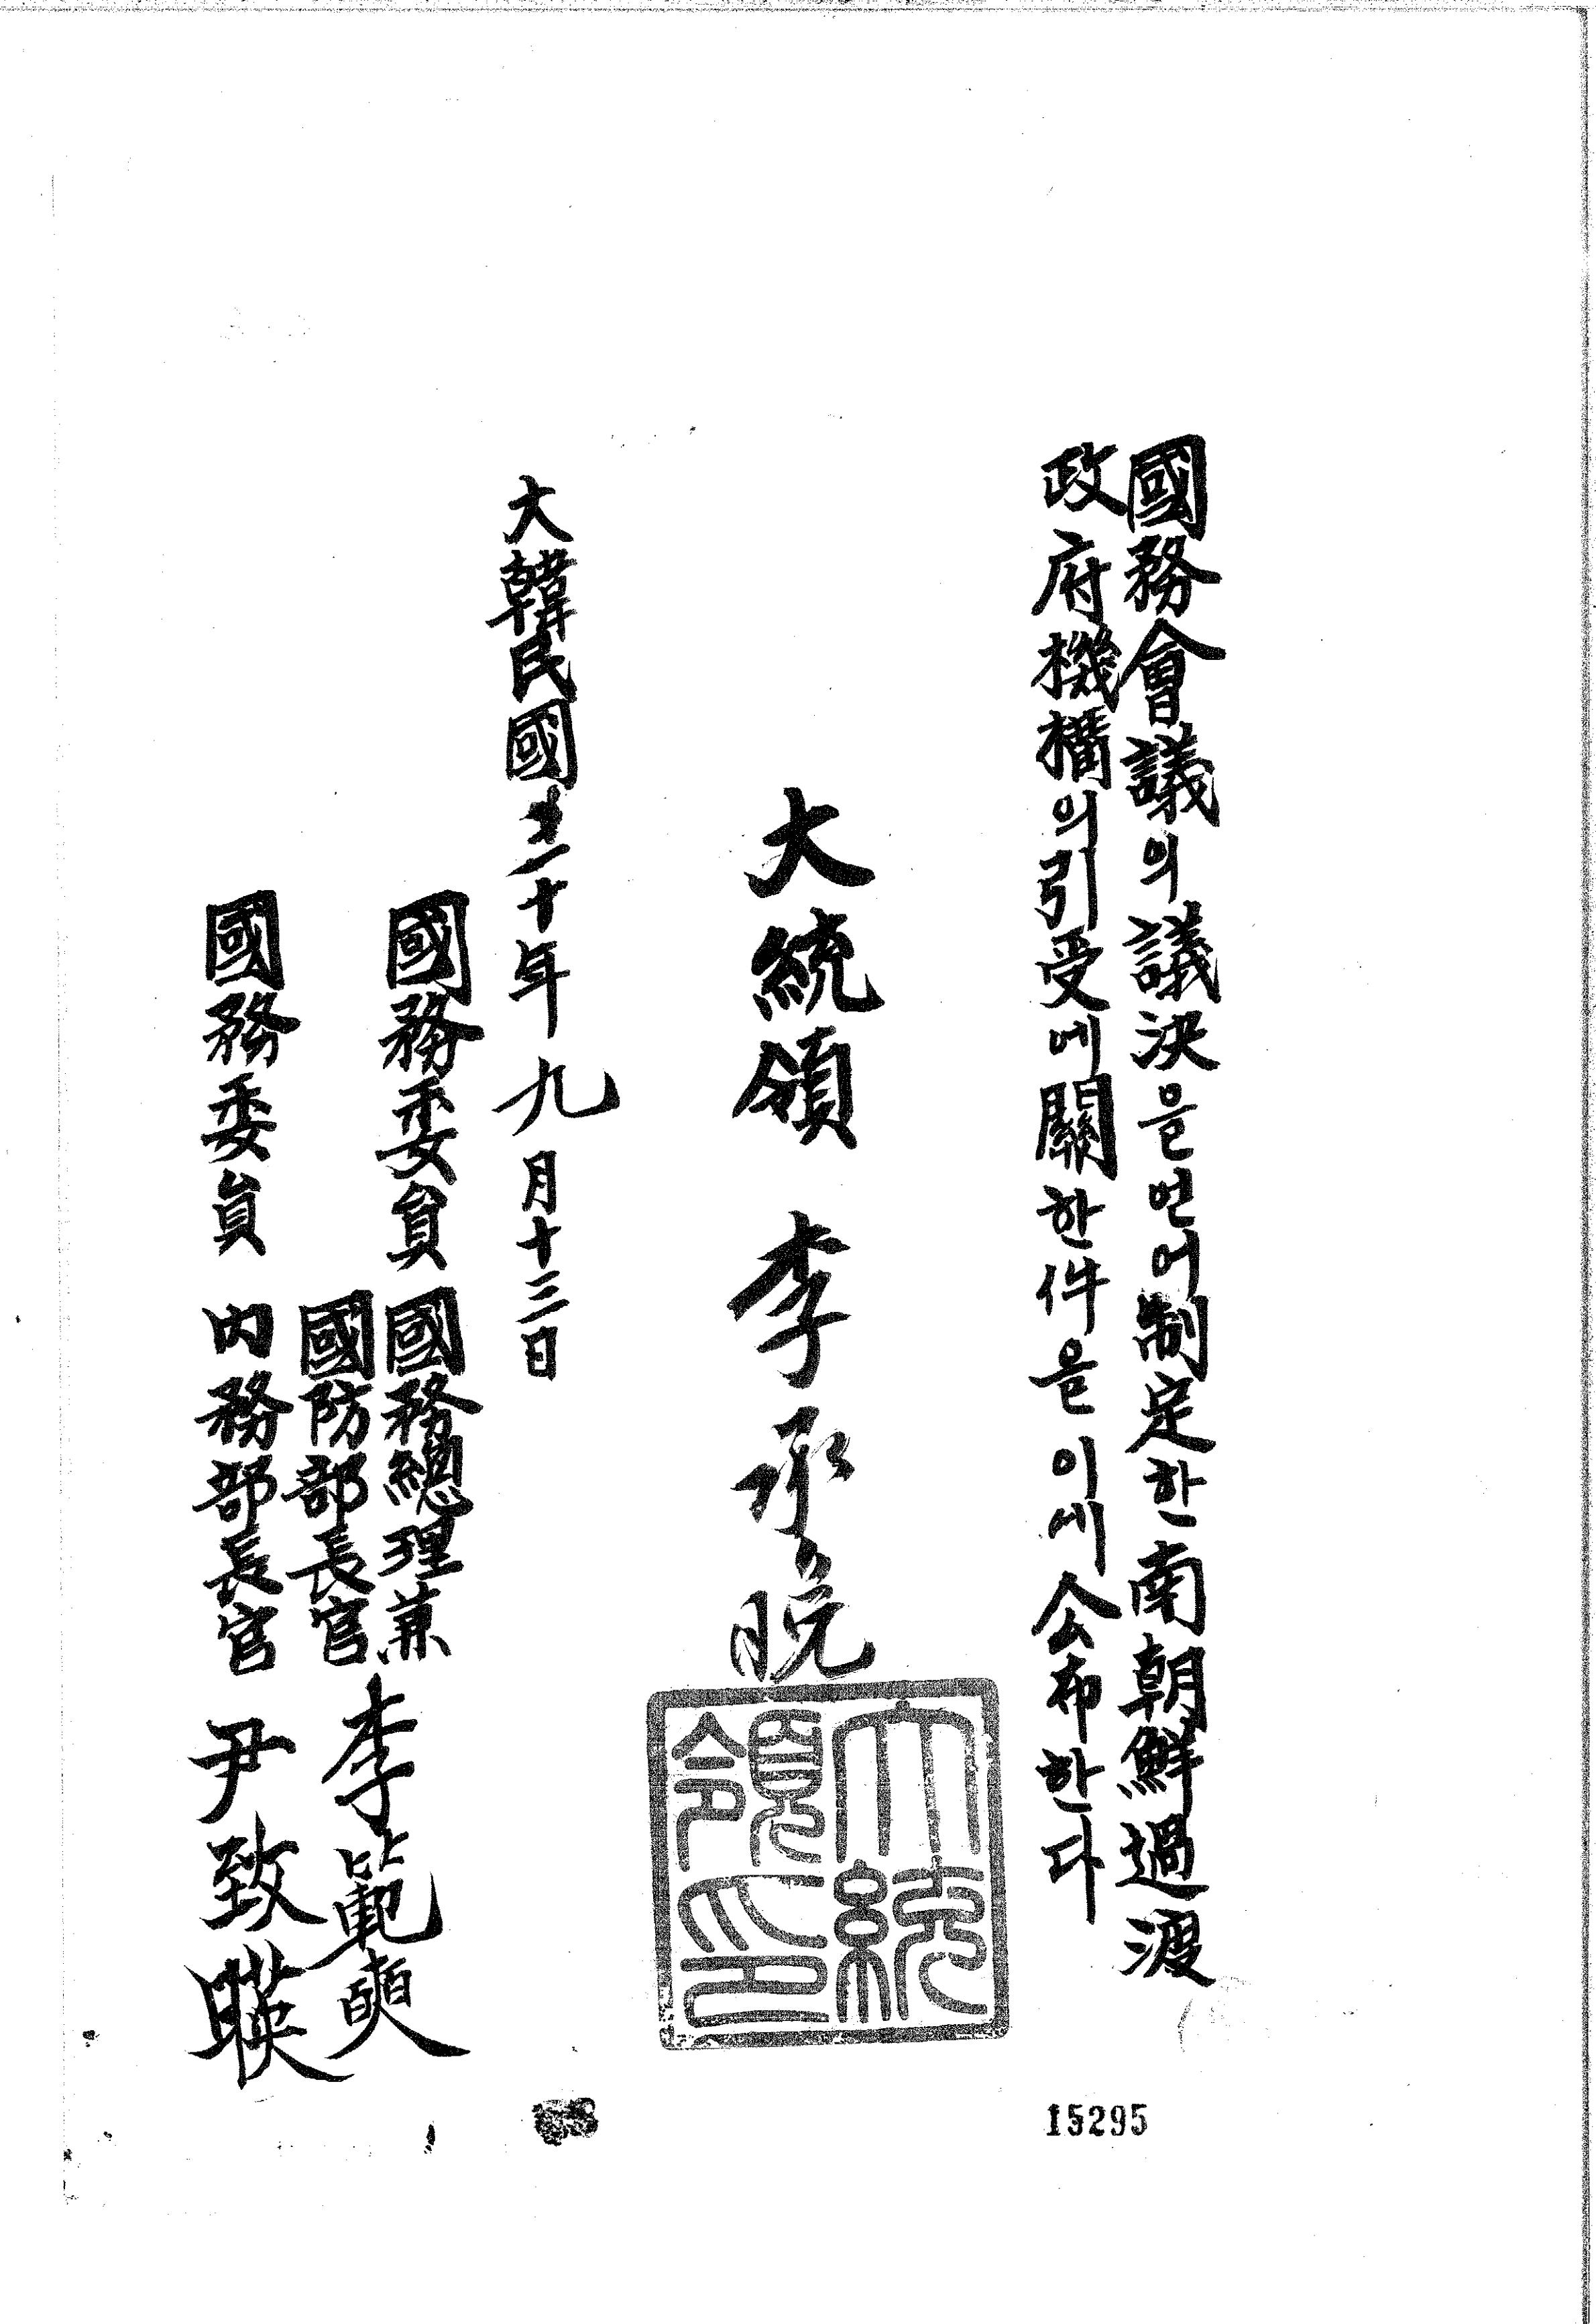 國務會議의議決을얻어制定한南朝鮮過渡
政府機構의引受에關한件을이에公布한다
大統領 李承晩
大統領印
大韓民國三十年九月十三日
國務委員 國務總理兼
國防部長官 李範奭
國務委員 內務部長官 尹致暎
15295